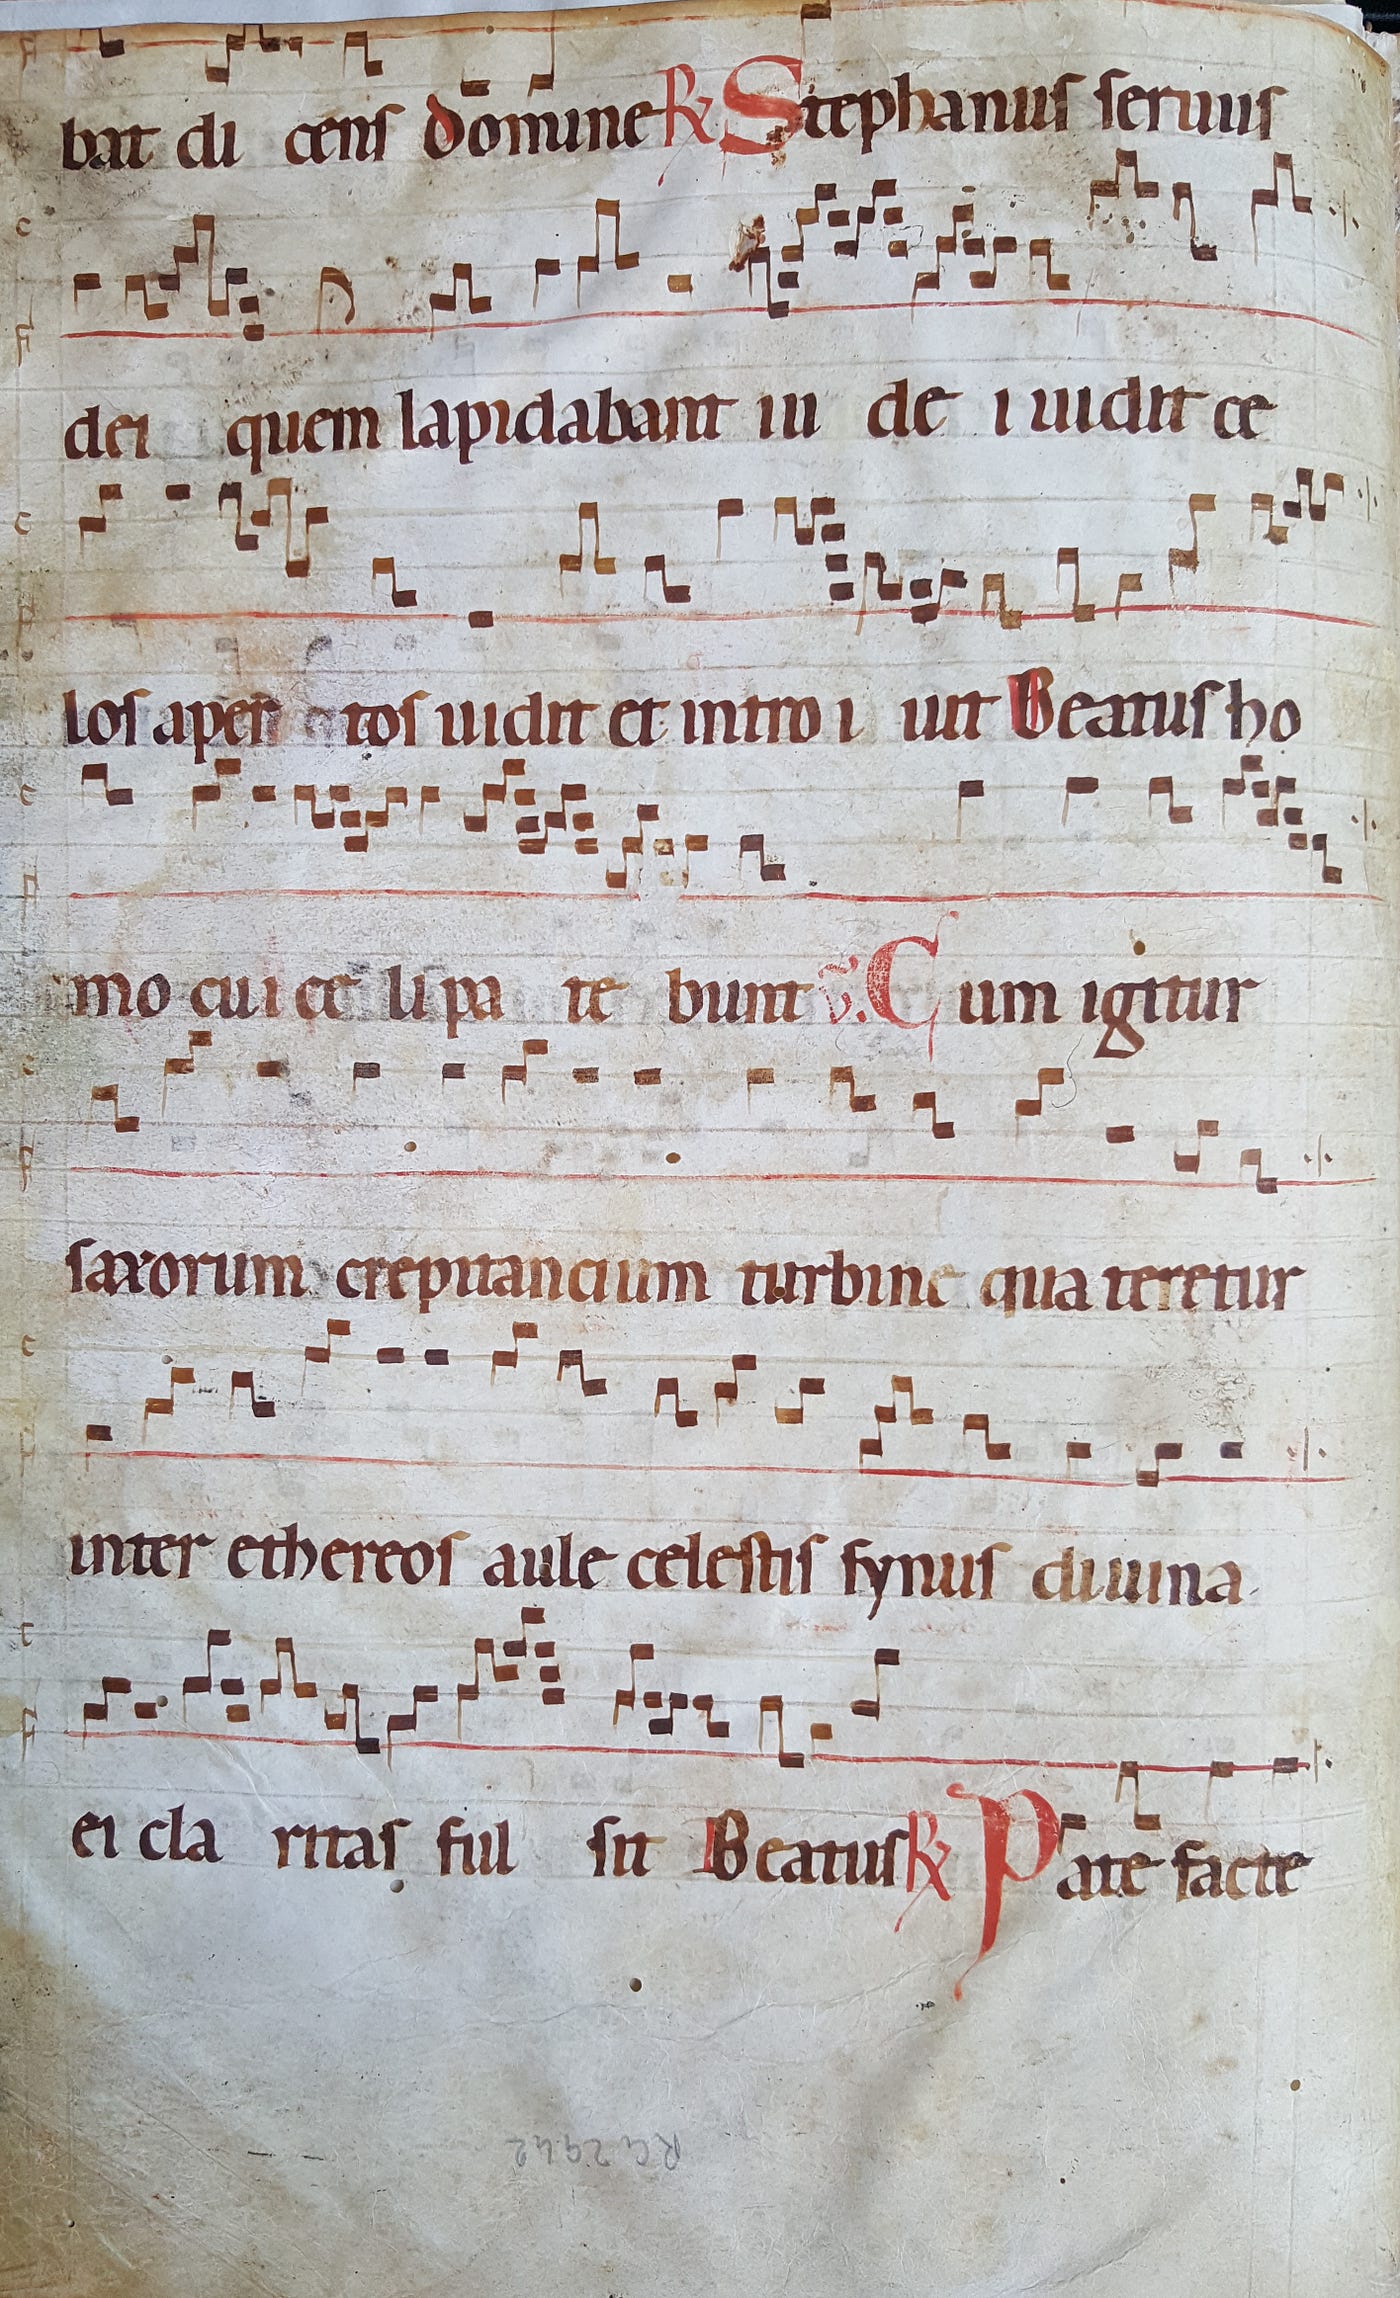 bat di cens domine R Stephanus seruus
dei quem lapidabant iu de i uidit ce
los aper tos uidit et intro i uit Beatus ho
mo cui ce li pa te bunt v. Cum igitur
saxorum crepitancium turbine qua teretur
inter ethereos aule celestis synus diuina
ei cla ritas ful sit Beatus R Pate facte
RG 2942